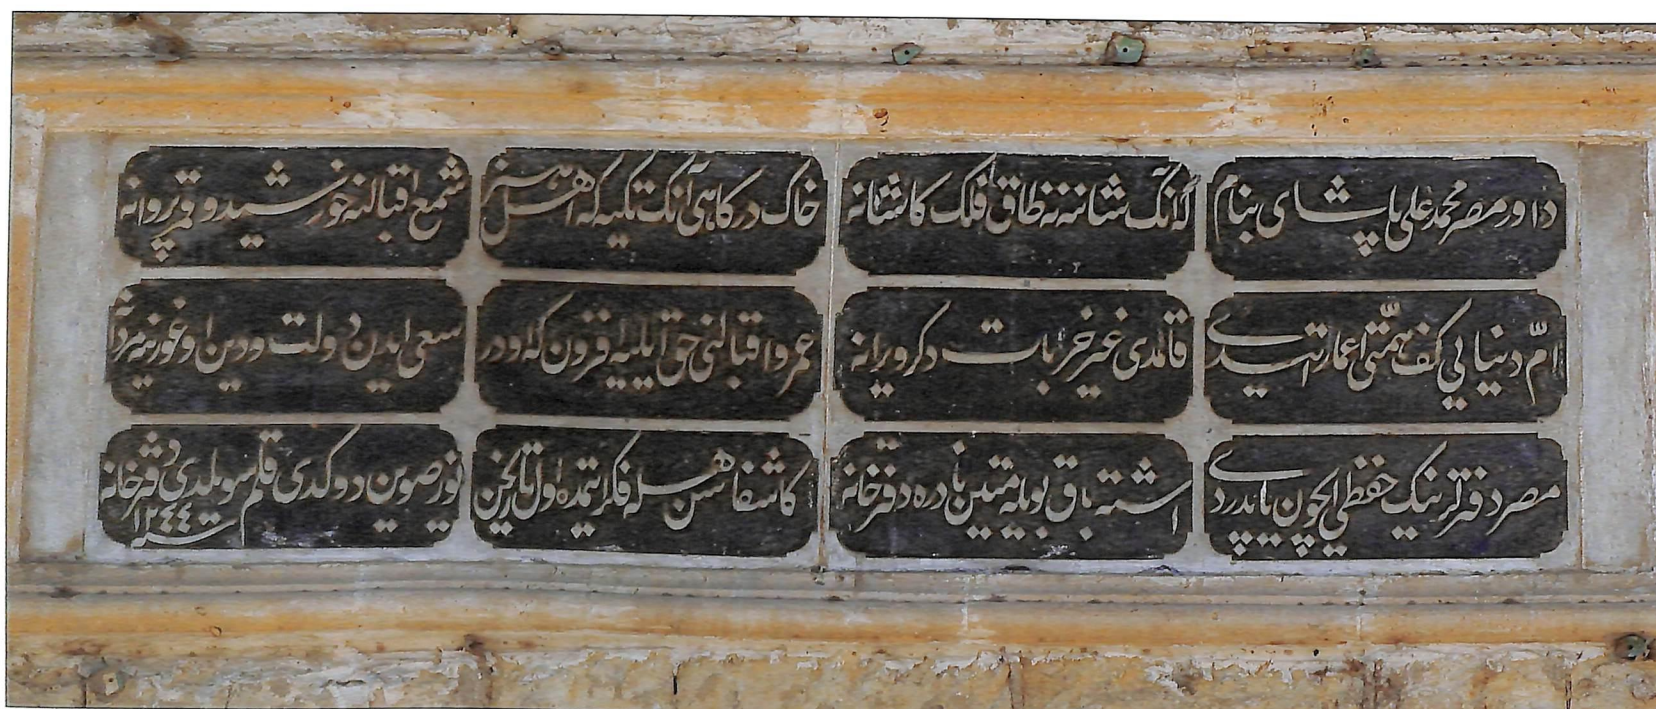 داور مصر محمد علی پاشای بنام
کانک شاننه نه طاق فلک کاشانه
خاک درکاهی آنک تکیه که اهل هنر
شمع اقبالنه خورشید و قمر پروانه
ام دنیایی کف همتی اعمار ایتدی
قالمدی غیر خرابات دکر ویرانه
عمر و اقبالنی حق ایلیه افزون که اودر
سعی ایدن دولت و دین اوغورینه مردانه
مصر دفترلرینک حفظی ایچون یاپدردی
اشته باق بویله متین نادره دفترخانه
کاشفا سن هله فکر ایتمده اول تاریخن
نور صوین دوکدی قلم سویلدی دفترخانه
سنه ١٢٤٤